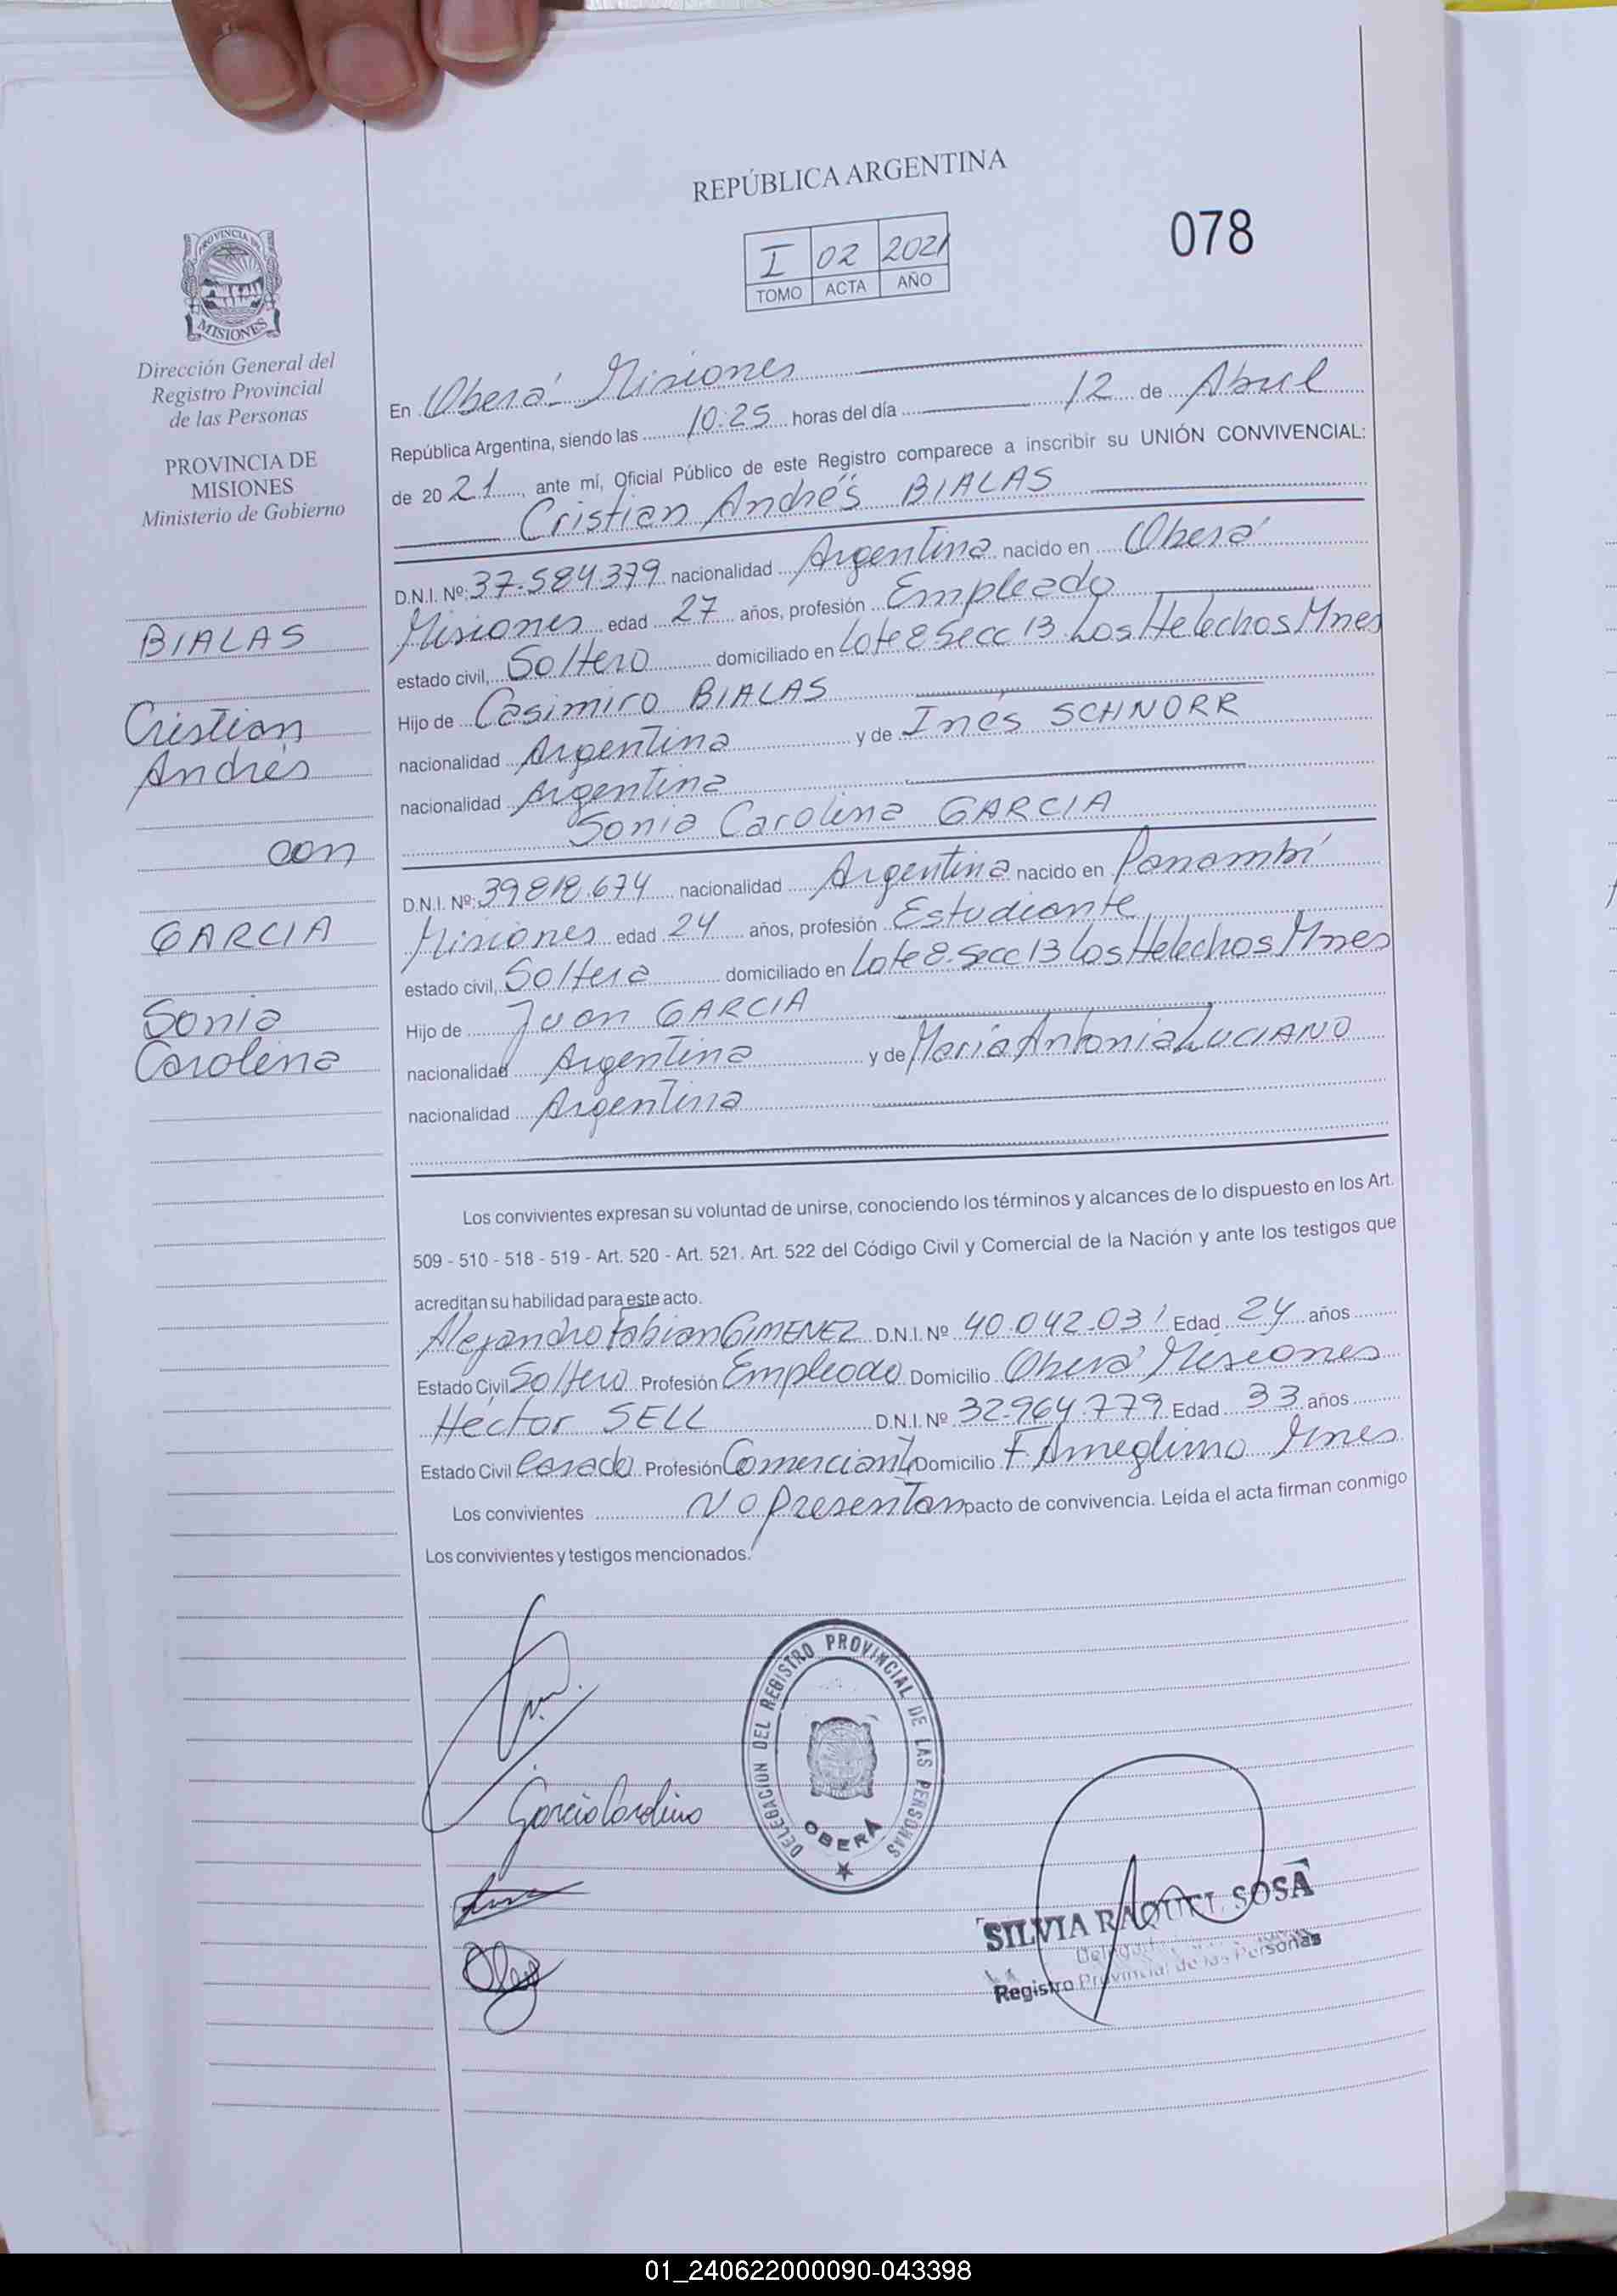 REPÚBLICA ARGENTINA
078
I 02 2021
TOMO ACTA AÑO
PROVINCIA DE
MISIONES
Dirección General del
Registro Provincial
de las Personas
PROVINCIA DE
MISIONES
Ministerio de Gobierno
BIALAS
Cristian
Andrés
con
GARCIA
Sonia
Carolina
En Oberá - Misiones
República Argentina, siendo las 10:25 horas del día 12 de Abril
de 2021, ante mí, Oficial Público de este Registro comparece a inscribir su UNIÓN CONVIVENCIAL:
Cristian Andrés BIALAS
D.N.I. Nº: 37.584.379 nacionalidad Argentina nacido en Oberá
Misiones edad 27 años, profesión Empleado
estado civil, Soltero domiciliado en Lote 8 Secc 13 Los Helechos Mnes
Hijo de Casimiro BIALAS
nacionalidad Argentina y de Inés SCHNORR
nacionalidad Argentina
Sonia Carolina GARCIA
D.N.I. Nº: 39.818.674 nacionalidad Argentina nacido en Panambí
Misiones edad 24 años, profesión Estudiante
estado civil, Soltera domiciliado en Lote 8 Secc 13 Los Helechos Mnes
Hijo de Juan GARCIA
nacionalidad Argentina y de María Antonia LUCIANO
nacionalidad Argentina
Los convivientes expresan su voluntad de unirse, conociendo los términos y alcances de lo dispuesto en los Art.
509 - 510 - 518 - 519 - Art. 520 - Art. 521. Art. 522 del Código Civil y Comercial de la Nación y ante los testigos que
acreditan su habilidad para este acto.
Alejandro Fabian GIMENEZ D.N.I. Nº 40.042.031 Edad 24 años
Estado Civil Soltero Profesión Empleado Domicilio Oberá Misiones
Héctor SELL D.N.I. Nº 32.964.779 Edad 33 años
Estado Civil Casado Profesión Comerciante Domicilio F. Ameghino Mnes
Los convivientes No Presentan pacto de convivencia. Leída el acta firman conmigo
Los convivientes y testigos mencionados.
DELEGACION DEL REGISTRO PROVINCIAL DE LAS PERSONAS
OBERÁ
Garcia Carolina
SILVIA RAQUEL SOSA
Registro Provincial de las Personas
01_240622000090-043398